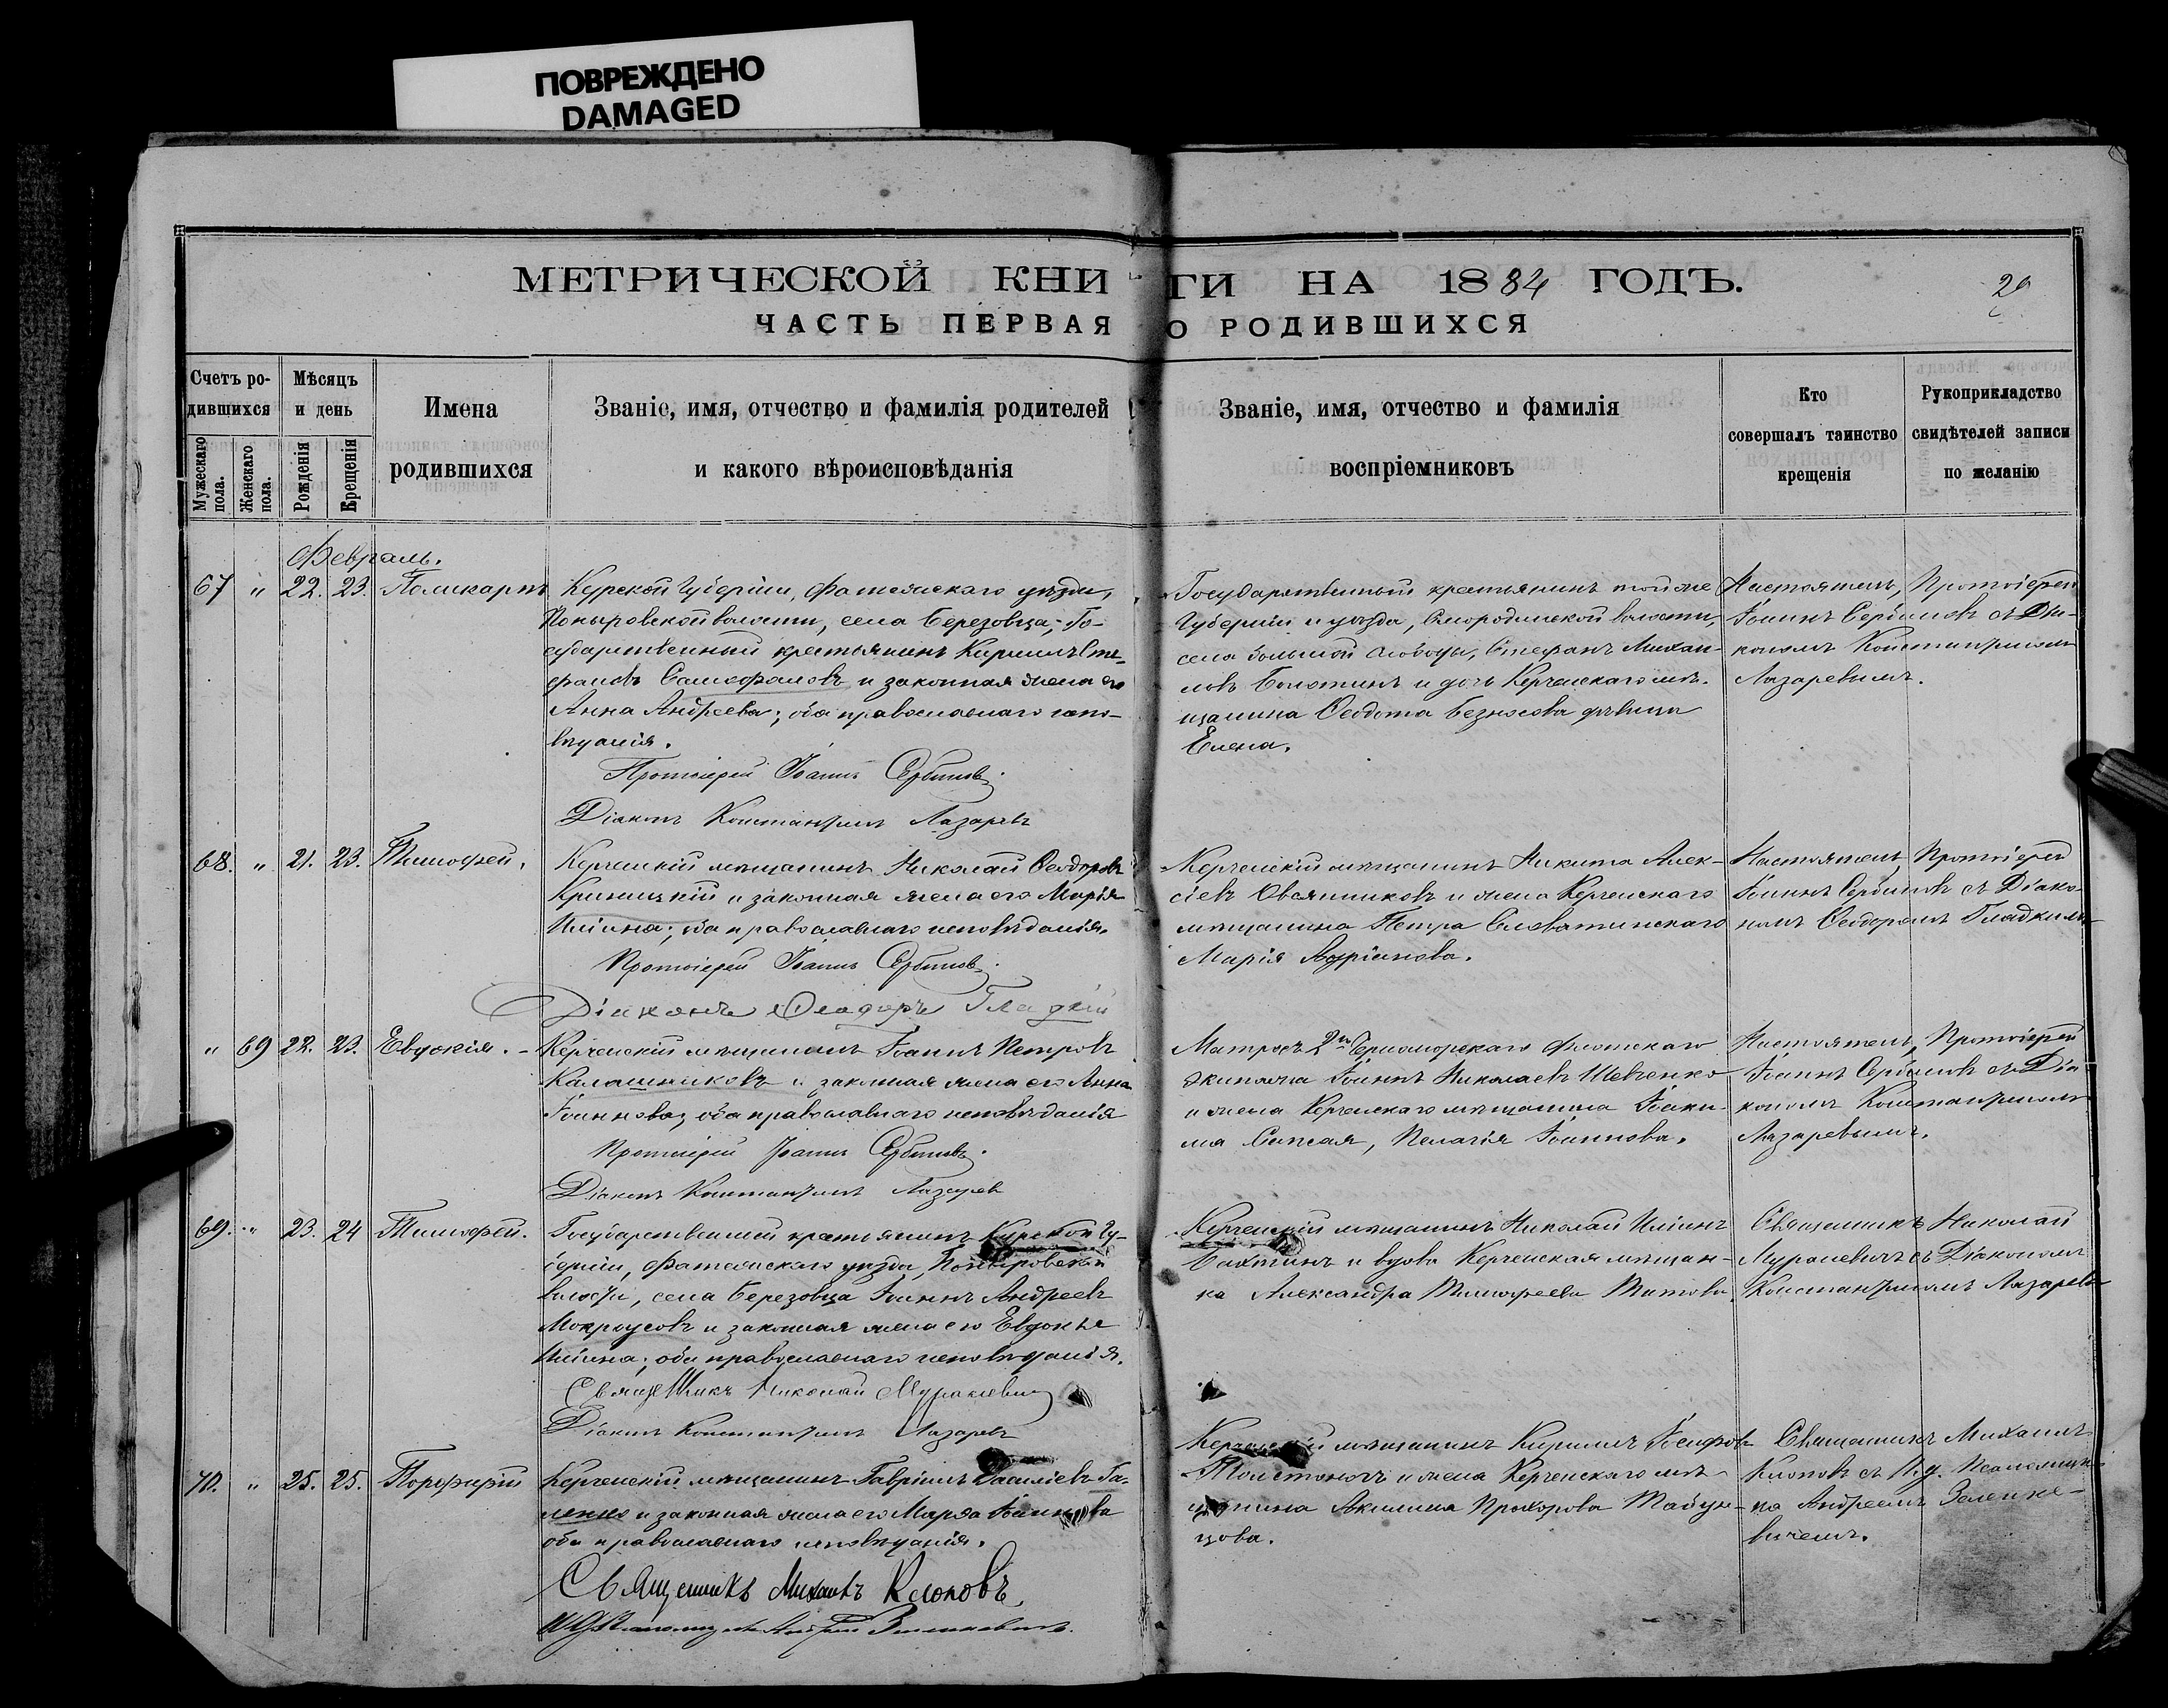 ПОВРЕЖДЕНО
DAMAGED
МЕТРИЧЕСКОЙ КНИГИ НА 1884 ГОДЪ.
29
ЧАСТЬ ПЕРВАЯ О РОДИВШИХСЯ
Счетъ родившихся
Мужескаго пола.
Женскаго пола.
Мѣсяцъ и день
Рожденія
Крещенія
Имена родившихся
Званіе, имя, отчество и фамилія родителей
и какого вѣроисповѣданія
Званіе, имя, отчество и фамилія
воспріемниковъ
Кто
совершалъ таинство
крещенія
Рукоприкладство
свидѣтелей записи
по желанію
Февраль.
67 " 22. 23. Поликарпъ
Курской Губерніи, Фатежскаго уѣзда,
Поныровской волости, села Березовца, Го-
сударственный крестьянинъ Кириллъ Сте-
фановъ и законная жена его
Анна Андреева; оба православнаго испо-
вѣданія.
Протоіерей Іоаннъ Сербиновъ.
Діаконъ Константинъ Лазаревъ
Государственный крестьянинъ той же
Губерніи и уѣзда, Смородинской волости,
села слободы, Стефанъ Михаи-
ловъ Болотинъ и дочь Керченскаго мѣ-
щанина Ѳеодота Безносова дѣвица
Елена.
Настоятель, Протоіерей
Іоаннъ Сербиновъ съ Діа-
кономъ Константиномъ
Лазаревымъ.
68. " 21. 23. Тимофей.
Керченскій мѣщанинъ Николай Ѳеодоровъ
Криницкій и законная жена его Марія
Ильина; оба православнаго исповѣданія.
Протоіерей Іоаннъ Сербиновъ.
Діаконъ Ѳеодоръ Гладкій
Керченскій мѣщанинъ Никита Алек-
сіевъ Овсянниковъ и жена Керченскаго
мѣщанина Петра Словатинскаго
Марія Адріанова.
Настоятель, Протоіерей
Іоаннъ Сербиновъ съ Діако-
номъ Ѳеодоромъ Гладкимъ
" 69 22. 23. Евдокія.
Керченскій мѣщанинъ Іоаннъ Петровъ
Калашниковъ и законная жена его Анна
Іоаннова; оба православнаго исповѣданія
Протоіерей Іоаннъ Сербиновъ.
Діаконъ Константинъ Лазаревъ
Матросъ 2го Черноморскаго флотскаго
экипажа Іоаннъ Николаевъ Шевченко
и жена Керченскаго мѣщанина Іоаки-
ма Пелагія Іоаннова.
Настоятель, Протоіерей
Іоаннъ Сербиновъ съ Діа-
кономъ Константиномъ
Лазаревымъ.
69. " 23. 24 Тимофей.
Государственный крестьянинъ Курской Гу-
берніи, Фатежскаго уѣзда, Поныровской
волости, села Березовца Іоаннъ Андреевъ
Мокроусовъ и законная жена его Евдокія
Ильина; оба православнаго исповѣданія.
Священникъ Николай Мураневичъ
Діаконъ Константинъ Лазаревъ
Керченскій мѣщанинъ Николай Ильинъ
Бахтинъ и вдова Керченская мѣщан-
ка Александра Тимофеева Титова.
Священникъ Николай
Мураневичъ съ Діакономъ
Константиномъ Лазаревы
70. " 25. 25. Порфирій
Керченскій мѣщанинъ Гавріилъ Василіевъ Га-
ленко и законная жена его Марѳа Іоаннова
оба православнаго исповѣданія.
Священникъ Михаилъ Клоповъ.
Керченскій мѣщанинъ Кириллъ Іосифовъ
и жена Керченскаго мѣ-
щанина Акилина Прохорова Табун-
цова.
Священникъ Михаилъ
Клоповъ съ И.д. Псаломщи-
ка Андреемъ Зеленке-
вичемъ.